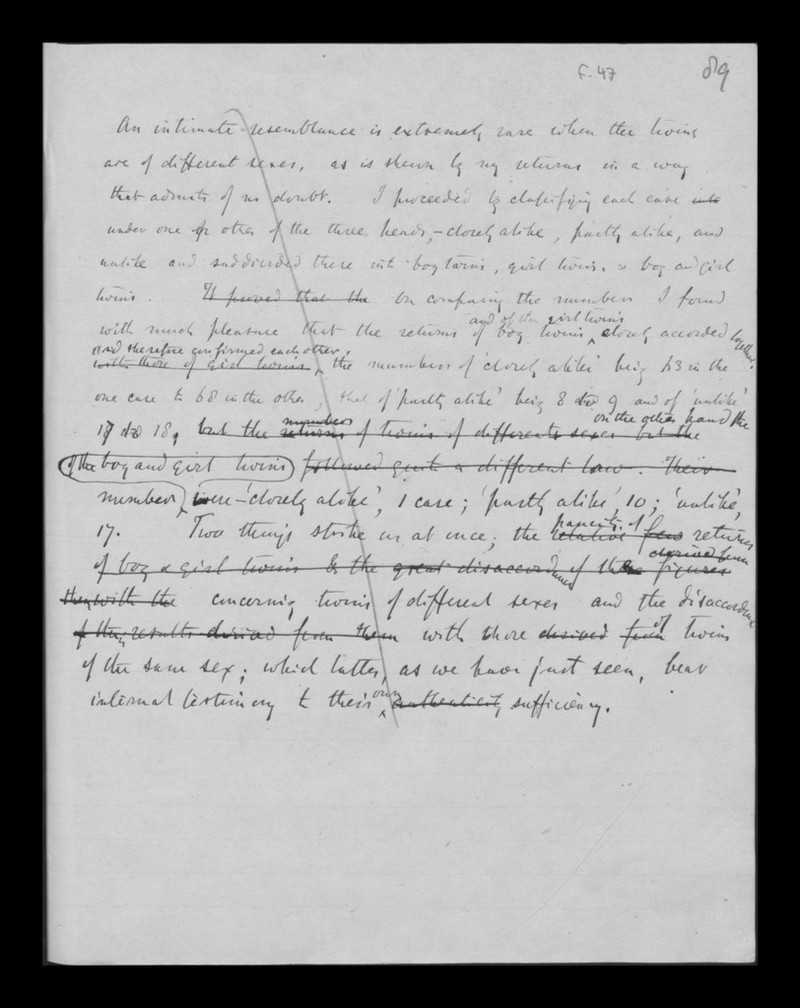 F. 47 89
An intimate resemblance is extremely rare when the twins
are of different sexes, as is shewn by my returns in a way
that admits of no doubt. I proceeded by classifying each case into
under one or other of the three heads,– closely alike, partly alike, and
unlike and subdivided these into boy twins, girl twins, & boy and girl
twins. It proved that the On comparing the numbers I found
and of the girl twins
with much pleasure that the returns of boy twins closely accorded together,
and therefore confirmed each other,
with those of girl twins, the numbers of 'closely alike' being 43 in the
one case to 68 in the other, that of 'partly alike' being 8 to 9 and of 'unlike'
numbers on the other hand the
17 to 18, but the returns of twins of different sexes but the
of the boy and girl twins followed quite a different law. Their
number were– 'closely alike', 1 case; 'partly alike', 10; 'unlike',
paucity of
17. Two things strike us at once; the relative few returns
derived from
of boy & girl twins & the great disaccord of the figures
they with the concerning twins of different sexes and the disaccordance
of
of the results derived from them with those derived from twins
of the same sex; which latter, as we have just seen, bear
own
internal testimony to their authenticity sufficiency.